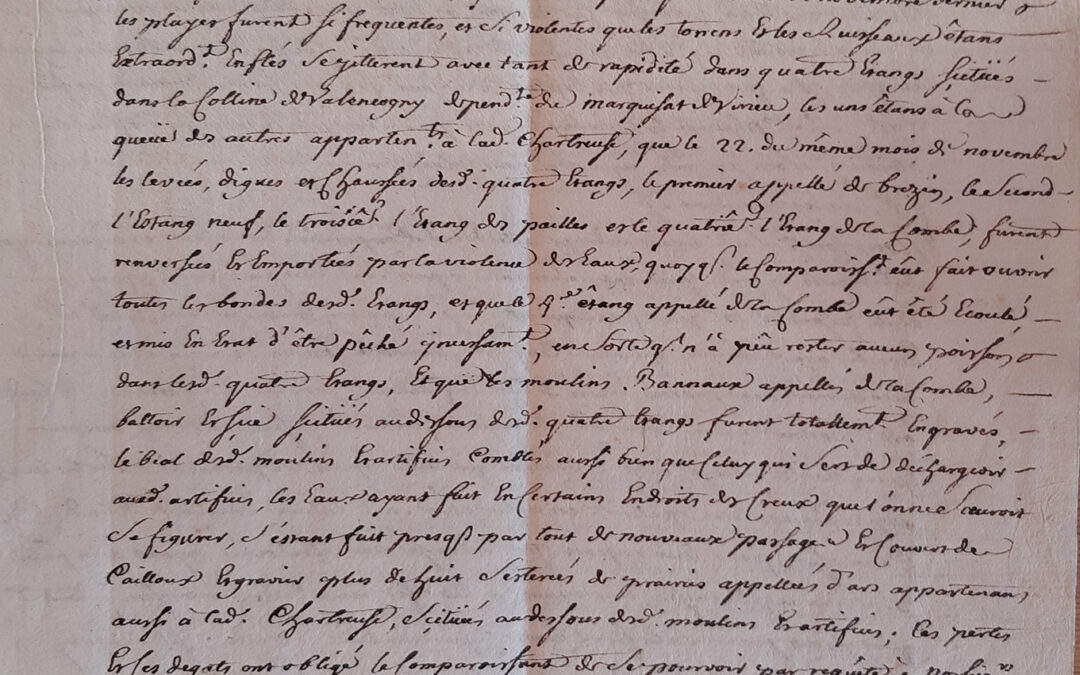 novembre dernier
les pluyes furent si frequentes, et si violentes que les torrens et les Ruisseaux êtans
Extraord.t Enflés se jetterent avec tant de rapidité dans quatre Etangs scitüés –
dans la Colline de Valencogny depend.te du marquisat de Virieu, les uns êtans à la
queüe des autres apparten.ts à lad. Chartreuse, que le 22. du même mois de novembre
les levées, digues et Chaussées desd. quatre Etangs, le premier appellé de brezin, le Second
l'Estang neuf, le troisie. l'Etang des pailles et le quatrie. l'Etang de la Combe, furent
renversés et Emportés par la violence des Eaux, quoyq. le Comparoiss.t eût fait ouvrir
toutes les bondes desd. Etangs, et que le 4.e êtang appellé de la Combe eût êté Ecoulé, –
et mis En Etat d'être pêché incessam.t, en sorte q. n'a pû rester aucun poisson
dans lesd. quatre Etangs, Et que les moulins Bannaux appellés de la Combe, –
battoir et scie scitüés audessous desd. quatre Etangs furent totallem.t Engravés, –
le béal desd. moulins Et artifices Comblé aussi bien que Celuy qui sert de déchargeoir –
auxd. artifices, les Eaux ayant fait En Certains Endroits des Creux que l'on ne sçauroit
se figurer, s'étant fait presq. par tout de nouveaux passages Et Couvert de
Cailloux Et gravier plus de huit sesterées de prairies appellées d'ars appartenans
aussi à lad. Chartreuse, scitüées audessous desd. moulins Et artifices; Ces pertes
Et Ces degats ont obligé le Comparoissant de se pourvoir par requête à